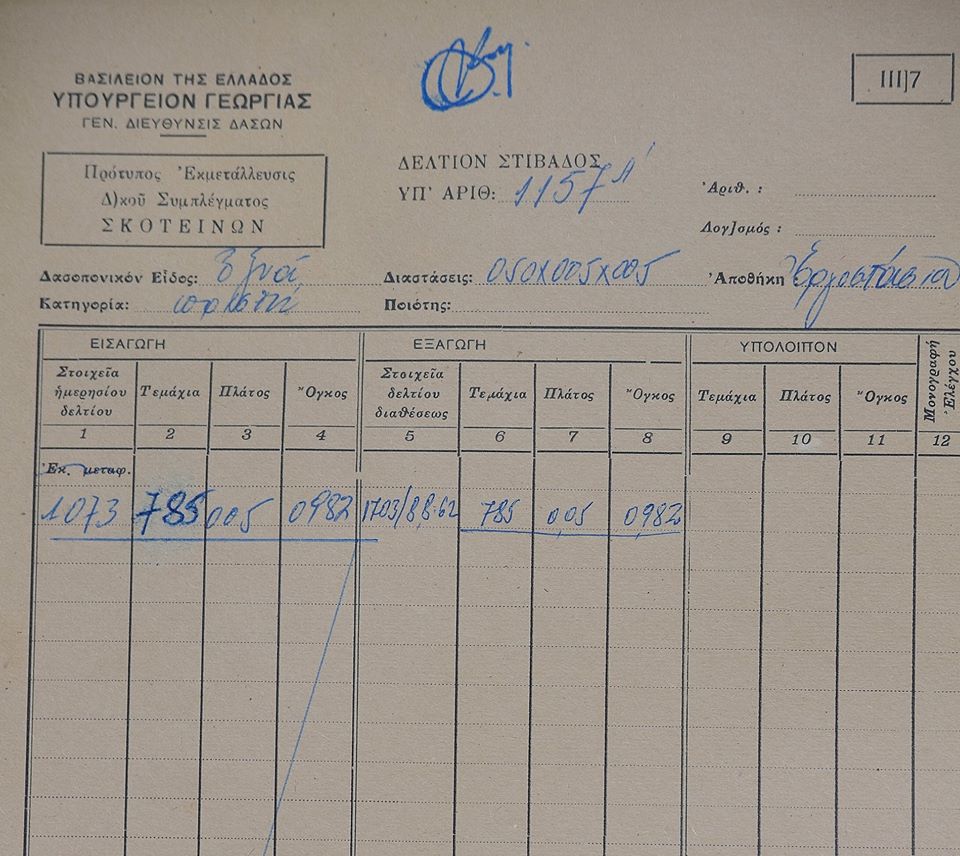 ΒΑΣΙΛΕΙΟΝ ΤΗΣ ΕΛΛΑΔΟΣ
ΥΠΟΥΡΓΕΙΟΝ ΓΕΩΡΓΙΑΣ
ΓΕΝ. ΔΙΕΥΘΥΝΣΙΣ ΔΑΣΩΝ
III]7
Πρότυπος Ἐκμετάλλευσις
Δ)κοῦ Συμπλέγματος
ΣΚΟΤΕΙΝΩΝ
ΔΕΛΤΙΟΝ ΣΤΙΒΑΔΟΣ
ΥΠ' ΑΡΙΘ: 1157 Α'
Ἀριθ. :
Λογ]σμός :
Δασοπονικόν Εἶδος: Οξυά
Διαστάσεις: 050Χ005Χ005
Ἀποθήκη Ἐργοστάσιον
Κατηγορία: πριστή
Ποιότης:
ΕΙΣΑΓΩΓΗ ΕΞΑΓΩΓΗ ΥΠΟΛΟΙΠΟΝ
Στοιχεῖα ἡμερησίου δελτίου Τεμάχια Πλάτος Ὄγκος Στοιχεῖα δελτίου διαθέσεως Τεμάχια Πλάτος Ὄγκος Τεμάχια Πλάτος Ὄγκος Μονογραφή Ἐλέγχου
1 2 3 4 5 6 7 8 9 10 11 12
Ἐκ. μεταφ.
1073 785 005 0982 1703/88.62 785 0,05 0,982